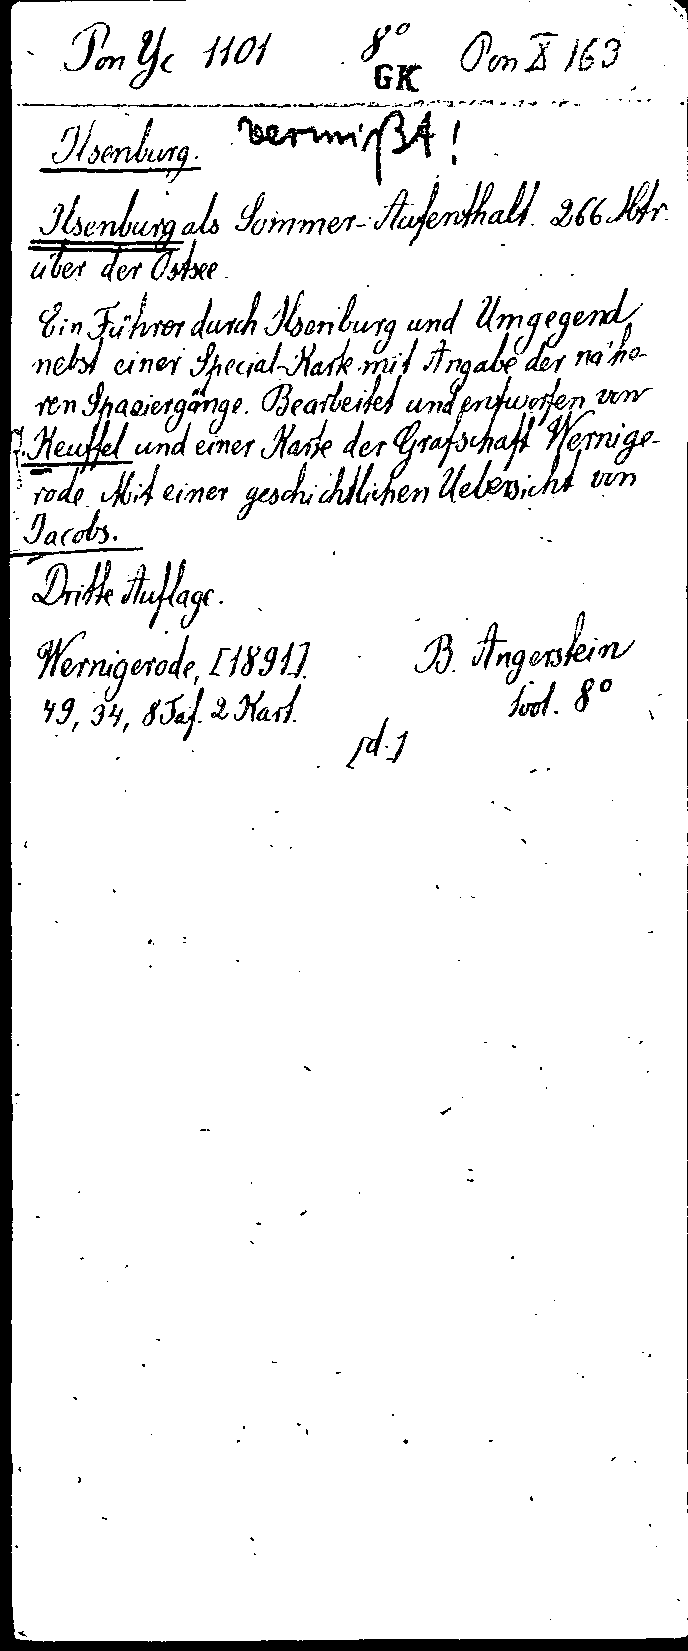 Pon Yc 1101 8° Pon X 163
GK
Ilsenburg. vermißt!
Ilsenburg als Sommer-Aufenthalt. 266 Mtr.
über der Ostsee.
Ein Führer durch Ilsenburg und Umgegend
nebst einer Special-Karte mit Angabe der nähe-
ren Spaziergänge. Bearbeitet und entworfen von
Keuffel und einer Karte der Grafschaft Wernige-
rode. Mit einer geschichtlichen Uebersicht von
Jacobs.
Dritte Auflage.
Wernigerode, [1891]. B. Angerstein
49, 34, 8 Taf. 2 Kart. 8°
[d.]